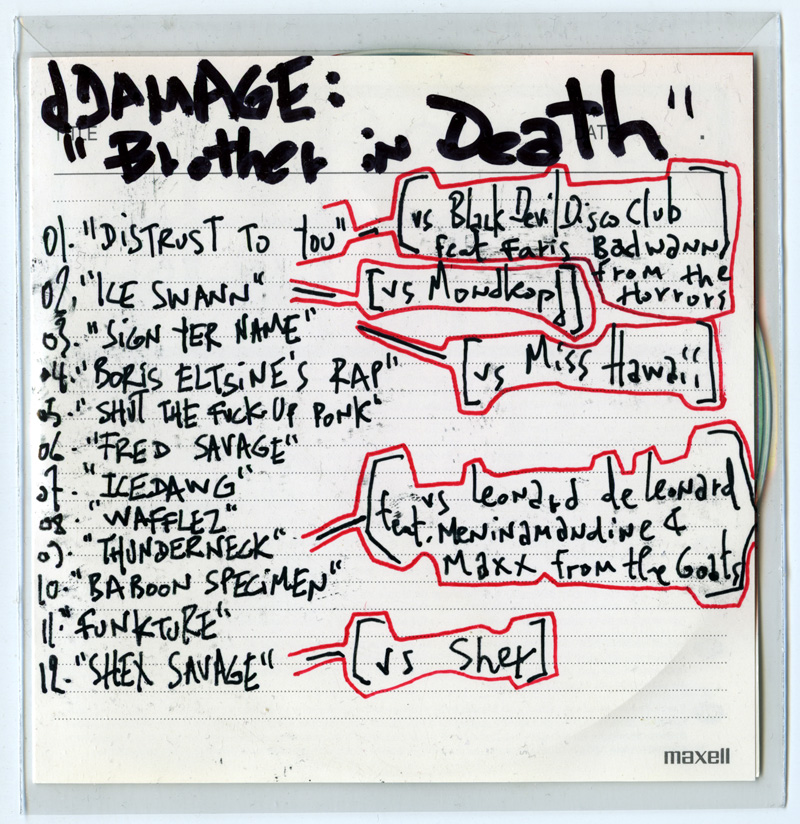 dDAMAGE:
"Brother in Death"
01. "DISTRUST TO YOU" [vs Black Devil Disco Club
feat Faris Badwann
from the
Horrors]
02. "ICE SWANN" [vs Mondkopf]
03. "SIGN YER NAME" [vs Miss Hawaii]
04. "BORIS ELTSINE'S RAP"
05. "SHUT THE FUCK UP PONK"
06. "FRED SAVAGE"
07. "ICEDAWG"
08. "WAFFLEZ"
09. "THUNDERNECK" [vs Leonard de Leonard
feat. MENINAMANDINE &
Maxx from the Goats]
10. "BABOON SPECIMEN"
11. "FUNKTURE"
12. "SHEX SAVAGE" [vs Shex]
maxell